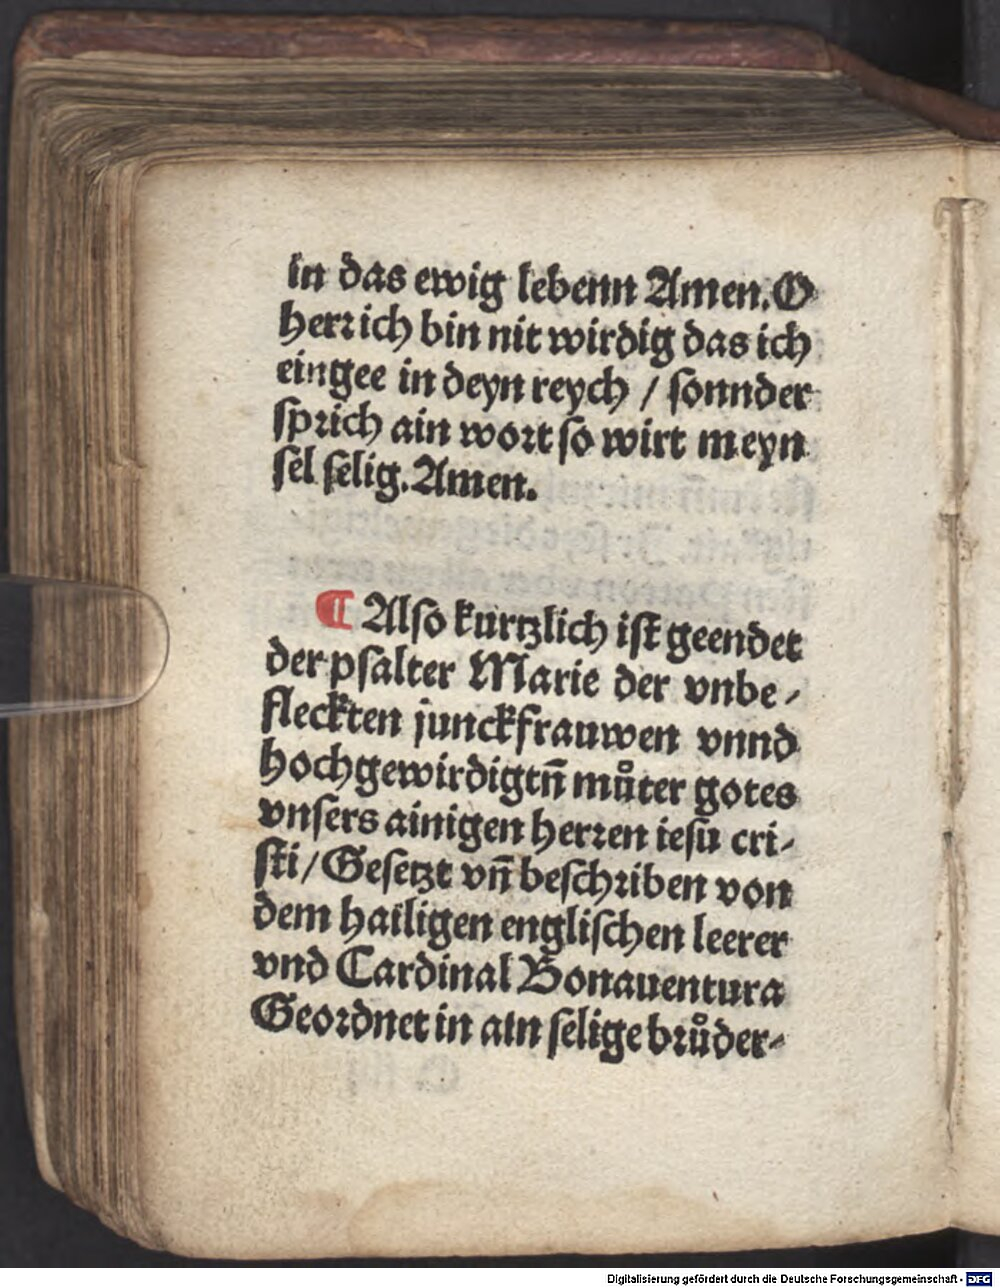 in das ewig lebenn Amen. O
herr ich bin nit wirdig das ich
eingee in deyn reych / sonnder
sprich ain wort so wirt meyn
sel selig. Amen.
¶ Also kurtzlich ist geendet
der psalter Marie der vnbe⸗
fleckten junckfrauwen vnnd
hochgewirdigtn̄ můter gotes
vnsers ainigen herren iesū cri⸗
sti / Gesetzt vn̄ beschriben von
dem hailigen englischen leerer
vnd Cardinal Bonauentura
Geordnet in ain selige brůder⸗
Digitalisierung gefördert durch die Deutsche Forschungsgemeinschaft - DFG